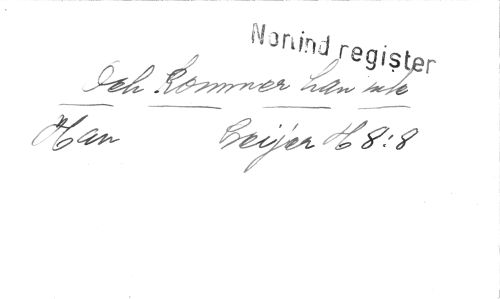 Norlind register
Och kommer han icke
Han Geijer H 8:8